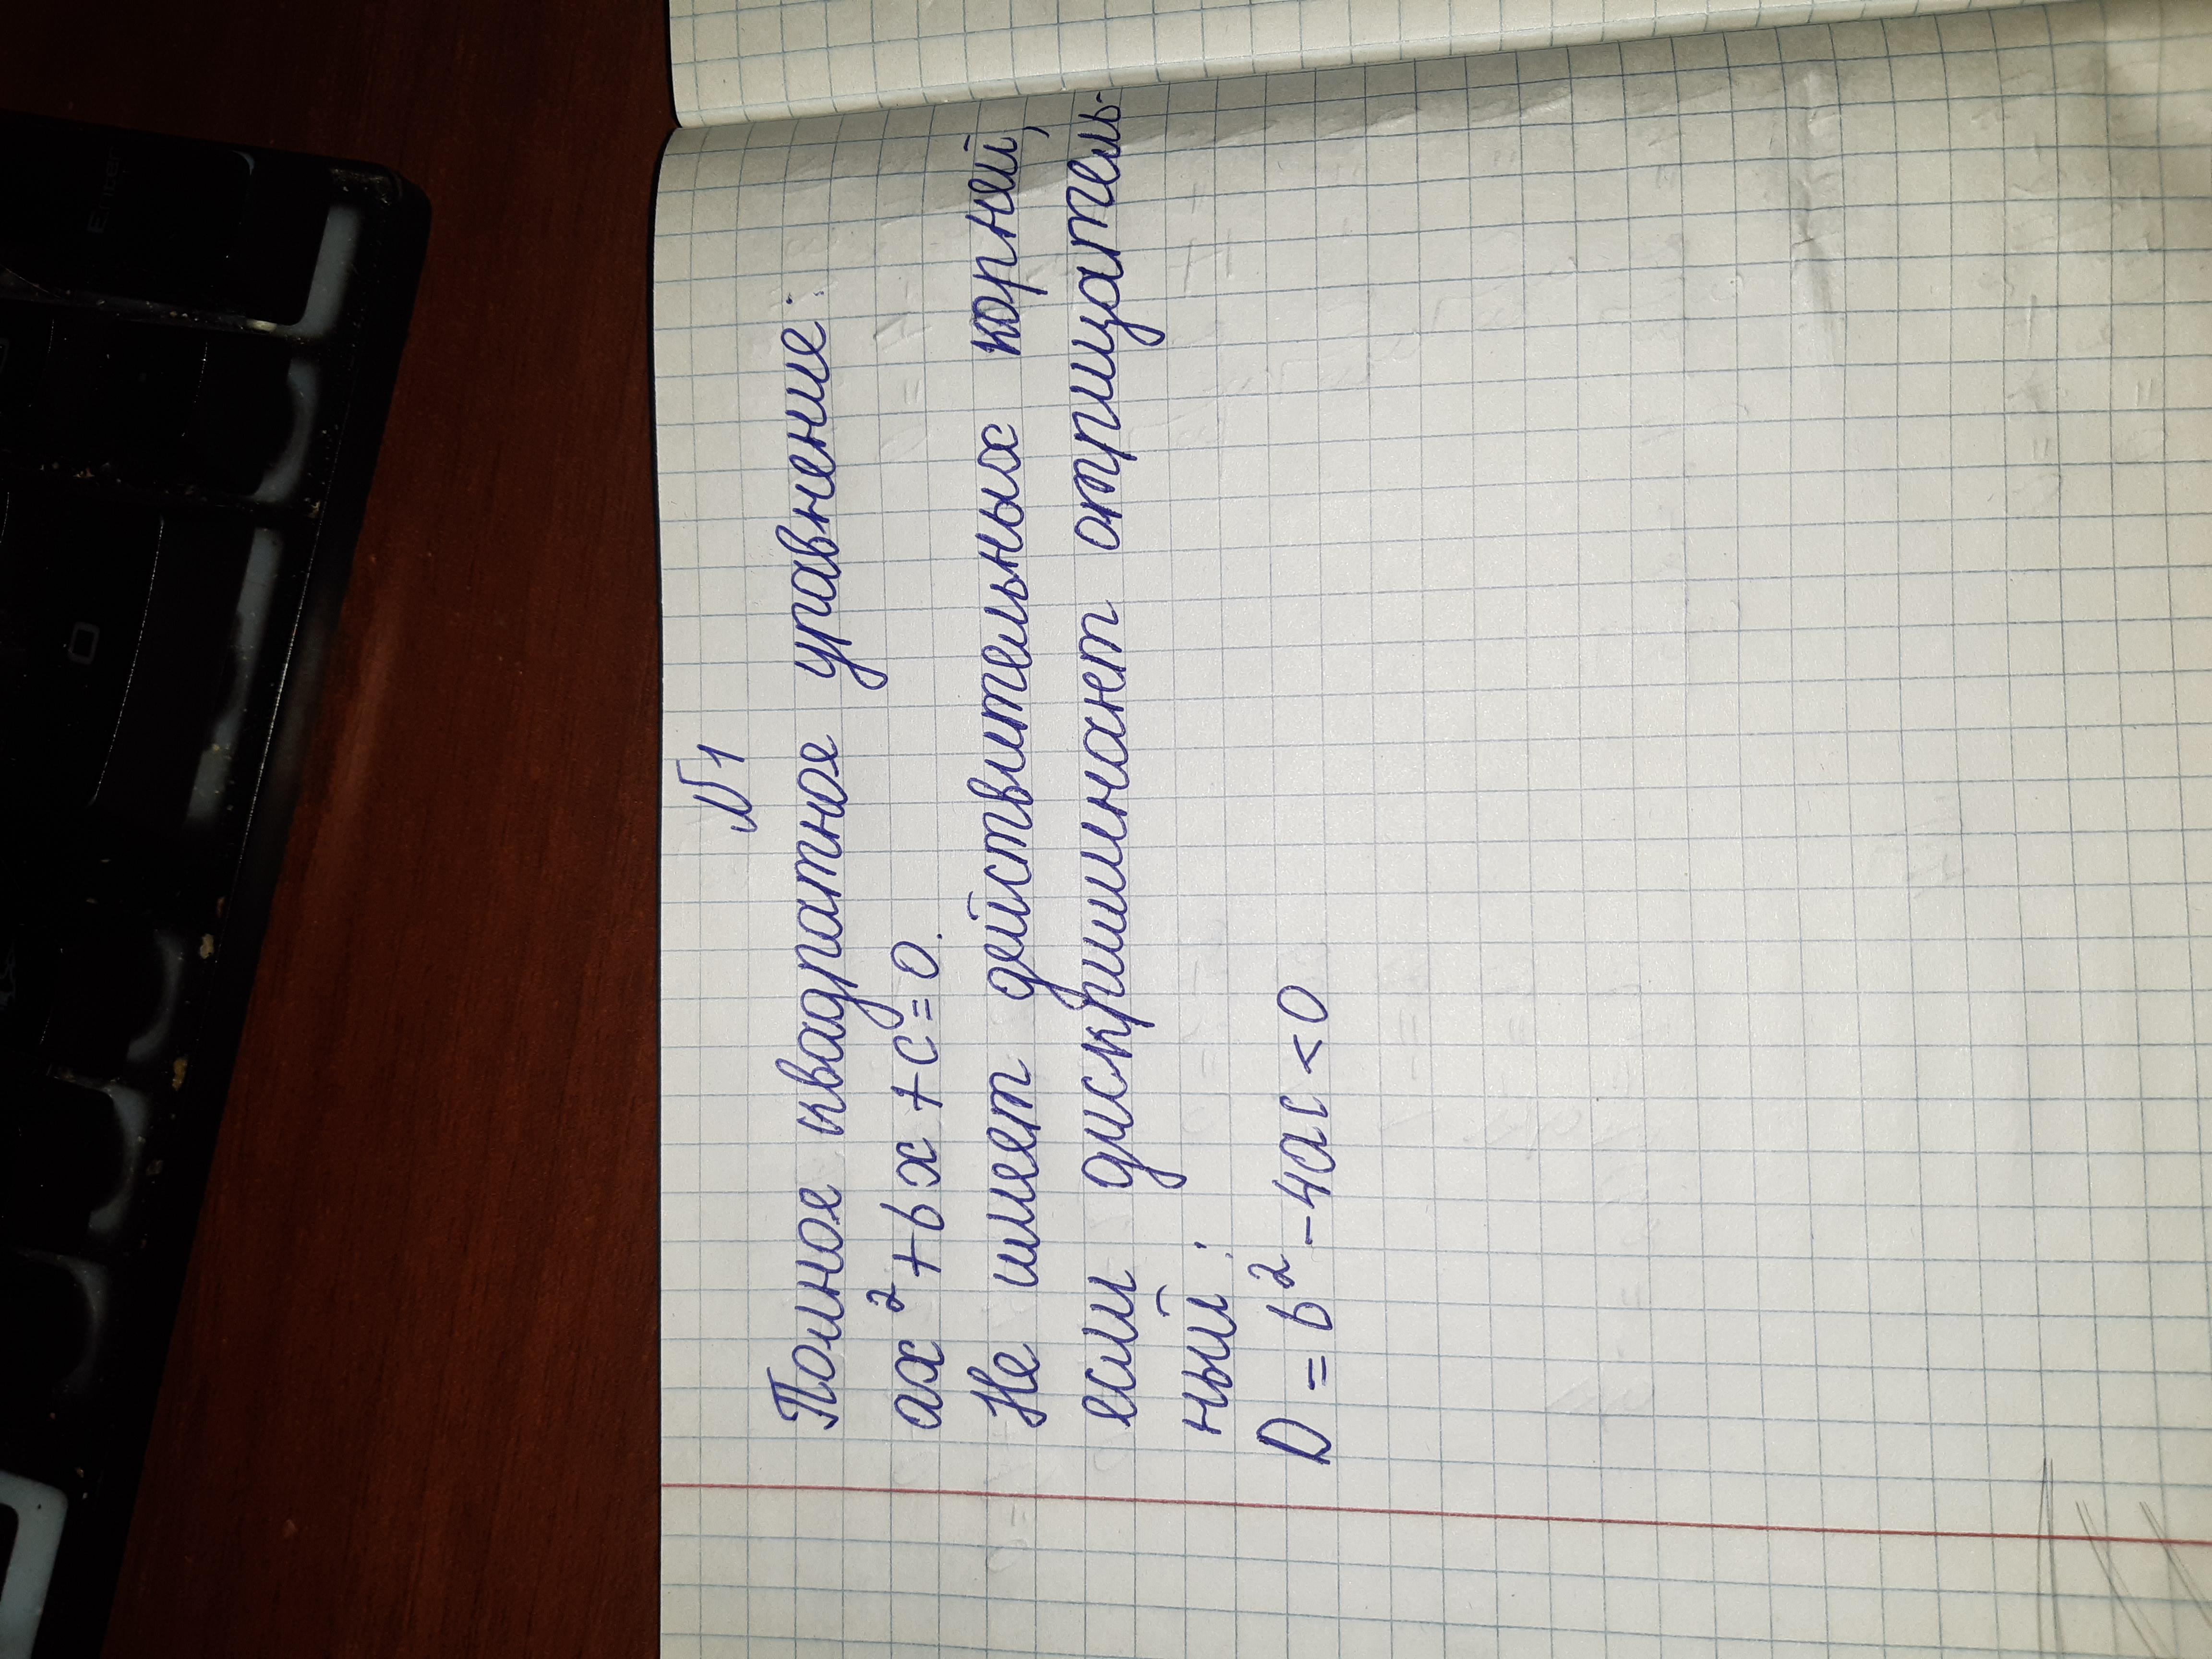 №1
Полное квадратное уравнение:
ax²+bx+c=0.
Не имеет действительных корней,
если дискриминант отрицатель-
ный:
D=b²-4ac<0
Enter